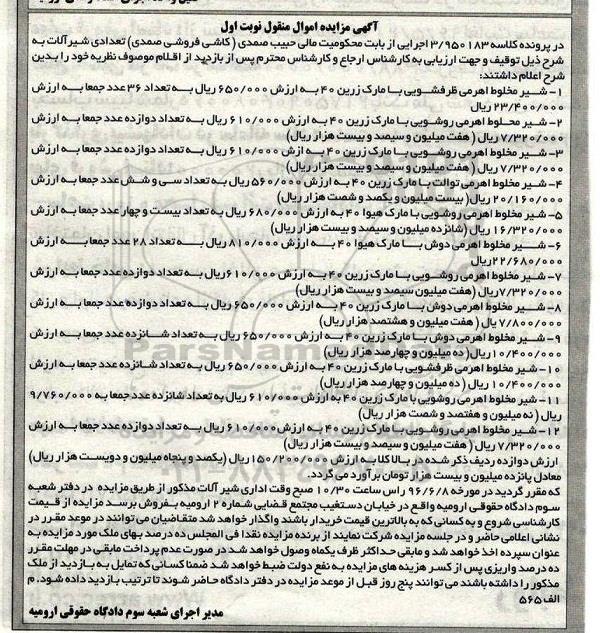 آگهی مزایده اموال منقول نوبت اول
در پرونده کلاسه ۳/۹۵۰۱۸۳ اجرایی از بابت محکومیت مالی حبیب صمدی (کاشی فروشی صمدی) تعدادی شیرآلات به
شرح ذیل توقیف و جهت ارزیابی به کارشناس ارجاع و کارشناس محترم پس از بازدید از اقلام موصوف نظریه خود را بدین
شرح اعلام داشتند:
۱- شیر مخلوط اهرمی ظرفشویی با مارک زرین ۴۰ به ارزش ۶۵۰/۰۰۰ ریال به تعداد ۳۶ عدد جمعا به ارزش
۲۳/۴۰۰/۰۰۰ ریال
۲- شیر مخلوط اهرمی روشویی با مارک زرین ۴۰ به ارزش ۶۱۰/۰۰۰ ریال به تعداد دوازده عدد جمعا به ارزش
۷/۳۲۰/۰۰۰ ریال (هفت میلیون و سیصد و بیست هزار ریال)
۳- شیر مخلوط اهرمی روشویی با مارک زرین ۴۰ به ازش ۶۱۰/۰۰۰ ریال به تعداد دوازده عدد جمعا به ارزش
۷/۳۲۰/۰۰۰ ریال (هفت میلیون و سیصد و بیست هزار ریال)
۴- شیر مخلوط اهرمی توالت با مارک زرین ۴۰ به ارزش ۵۶۰/۰۰۰ ریال به تعداد سی و شش عدد جمعا به ارزش
۲۰/۱۶۰/۰۰۰ ریال (بیست میلیون و یکصد و شصت هزار ریال)
۵- شیر مخلوط اهرمی روشویی با مارک هیوا ۴۰ به ارزش ۶۸۰/۰۰۰ ریال به تعداد بیست و چهار عدد جمعا به ارزش
۱۶/۳۲۰/۰۰۰ ریال (شانزده میلیون و سیصد و بیست هزار ریال)
۶- شیر مخلوط اهرمی دوش با مارک هیوا ۴۰ به ارزش ۸۱۰/۰۰۰ ریال به تعداد ۲۸ عدد جمعا به ارزش
۲۲/۶۸۰/۰۰۰ ریال
۷- شیر مخلوط اهرمی روشویی با مارک زرین ۴۰ به ارزش ۶۱۰/۰۰۰ ریال به تعداد دوازده عدد جمعا به ارزش
۷/۳۲۰/۰۰۰ ریال (هفت میلیون سیصد و بیست هزار ریال)
۸- شیر مخلوط اهرمی دوش با مارک زرین ۴۰ به ارزش ۶۵۰/۰۰۰ ریال به تعداد دوازده عدد جمعا به ارزش
۷/۸۰۰/۰۰۰ ریال (هفت میلیون و هشتصد هزار ریال)
۹- شیر مخلوط اهرمی دوش با مارک زرین ۴۰ به ارزش ۶۵۰/۰۰۰ ریال به تعداد شانزده عدد جمعا به ارزش
۱۰/۴۰۰/۰۰۰ ریال (ده میلیون و چهارصد هزار ریال)
۱۰- شیر مخلوط اهرمی ظرفشویی با مارک زرین ۴۰ به ارزش ۶۵۰/۰۰۰ ریال به تعداد شانزده عدد جمعا به ارزش
۱۰/۴۰۰/۰۰۰ ریال (ده میلیون و چهارصد هزار ریال)
۱۱- شیر مخلوط اهرمی روشویی با مارک زرین ۴۰ به ارزش ۶۱۰/۰۰۰ ریال به تعداد شانزده عدد جمعا به ۹/۷۶۰/۰۰۰
ریال (نه میلیون و هفتصد و شصت هزار ریال)
۱۲- شیر مخلوط اهرمی روشویی با مارک زرین ۴۰ به ارزش ۶۱۰/۰۰۰ ریال به تعداد دوازده عدد جمعا به ارزش
۷/۳۲۰/۰۰۰ ریال (هفت میلیون و سیصد و بیست هزار ریال)
ارزش دوازده ردیف ذکر شده در بالا کلا به ارزش ۱۵۰/۲۰۰/۰۰۰ ریال (یکصد و پنجاه میلیون و دویست هزار ریال)
معادل پانزده میلیون و بیست هزار تومان برآورد می گردد.
که مقرر گردید در مورخه ۹۶/۶/۸ راس ساعت ۱۰/۳۰ صبح وقت اداری شیر آلات مذکور از طریق مزایده در دفتر شعبه
سوم دادگاه حقوقی ارومیه واقع در خیابان دستغیب مجتمع قضایی شماره ۲ ارومیه بفروش برسد مزایده از قیمت
کارشناسی شروع و به کسانی که به بالاترین قیمت خریدار باشند واگذار خواهد شد متقاضیان می توانند در موعد مقرر در
نشانی اعلامی حاضر و در جلسه مزایده شرکت نمایند از برنده مزایده نقدا فی المجلس ده درصد بهای ملک مورد مزایده به
عنوان سپرده اخذ خواهد شد و مابقی حداکثر ظرف یکماه وصول خواهد شد در صورت عدم پرداخت مابقی در مهلت مقرر
ده درصد واریزی پس از کسر هزینه های مزایده به نفع دولت ضبط خواهد شد ضمنا کسانی که تمایل به بازدید از ملک
مذکور را داشته باشند می توانند پنج روز قبل از موعد مزایده در دفتر دادگاه حاضر شوند تا ترتیب بازدید داده شود. م
الف ۵۶۵
مدیر اجرای شعبه سوم دادگاه حقوقی ارومیه